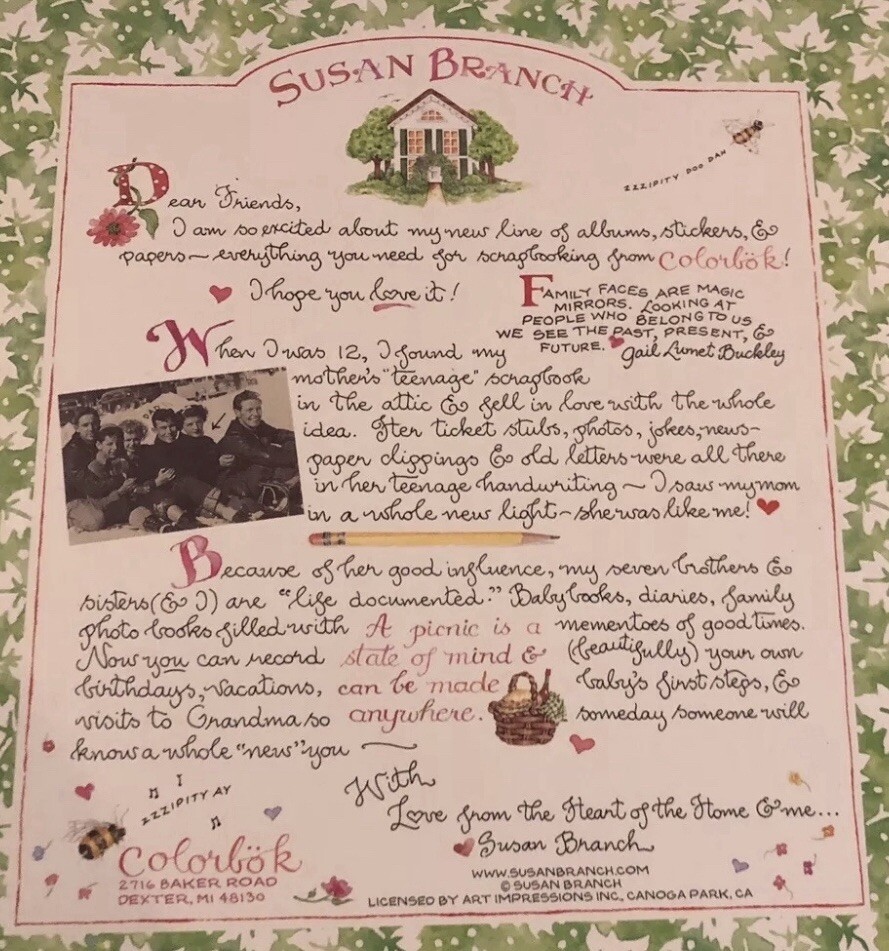 SUSAN BRANCH
ZZZIPITY DOO DAH
Dear Friends,
I am so excited about my new line of albums, stickers, &
papers ~ everything you need for scrapbooking from Colorbök!
I hope you love it!
FAMILY FACES ARE MAGIC
MIRRORS. LOOKING AT
PEOPLE WHO BELONG TO US
WE SEE THE PAST, PRESENT, &
FUTURE. Gail Lumet Buckley
When I was 12, I found my
mother's "teenage" scrapbook
in the attic & fell in love with the whole
idea. Her ticket stubs, photos, jokes, news-
paper clippings & old letters were all there
in her teenage handwriting ~ I saw my mom
in a whole new light ~ she was like me!
Because of her good influence, my seven brothers &
sisters (& I) are "life documented." Baby books, diaries, family
photo books filled with mementoes of good times.
Now you can record (beautifully) your own
birthdays, vacations, baby's first steps, &
visits to Grandma so someday someone will
know a whole "new" you ~
A picnic is a
state of mind &
can be made
anywhere.
With
Love from the Heart of the Home & me...
Susan Branch
ZZZIPITY AY
Colorbök
2716 BAKER ROAD
DEXTER, MI 48130
WWW.SUSANBRANCH.COM
© SUSAN BRANCH
LICENSED BY ART IMPRESSIONS INC. CANOGA PARK, CA